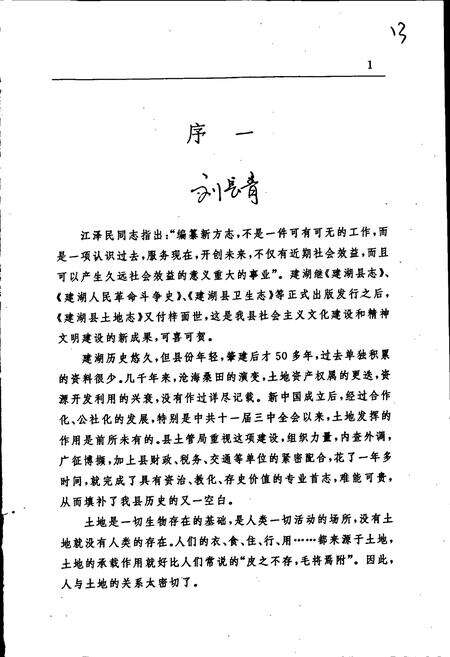 13
1
序一
刘长青
江泽民同志指出:“编纂新方志,不是一件可有可无的工作,而
是一项认识过去,服务现在,开创未来,不仅有近期社会效益,而且
可以产生久远社会效益的意义重大的事业”。建湖继《建湖县志》、
《建湖人民革命斗争史》、《建湖县卫生志》等正式出版发行之后,
《建湖县土地志》又付梓面世,这是我县社会主义文化建设和精神
文明建设的新成果,可喜可贺。
建湖历史悠久,但县份年轻,肇建后才50多年,过去单独积累
的资料很少。几千年来,沧海桑田的演变,土地资产权属的更迭,资
源开发利用的兴衰,没有作过详尽记载。新中国成立后,经过合作
化、公社化的发展,特别是中共十一届三中全会以来,土地发挥的
作用是前所未有的。县土管局重视这项建设,组织力量,内查外调,
广征博撷,加上县财政、税务、交通等单位的紧密配合,花了一年多
时间,就完成了具有资治、教化、存史价值的专业首志,难能可贵,
从而填补了我县历史的又一空白。
土地是一切生物存在的基础,是人类一切活动的场所,没有土
地就没有人类的存在。人们的衣、食、住、行、用……都来源于土地,
土地的承载作用就好比人们常说的“皮之不存,毛将焉附”。因此,
人与土地的关系太密切了。